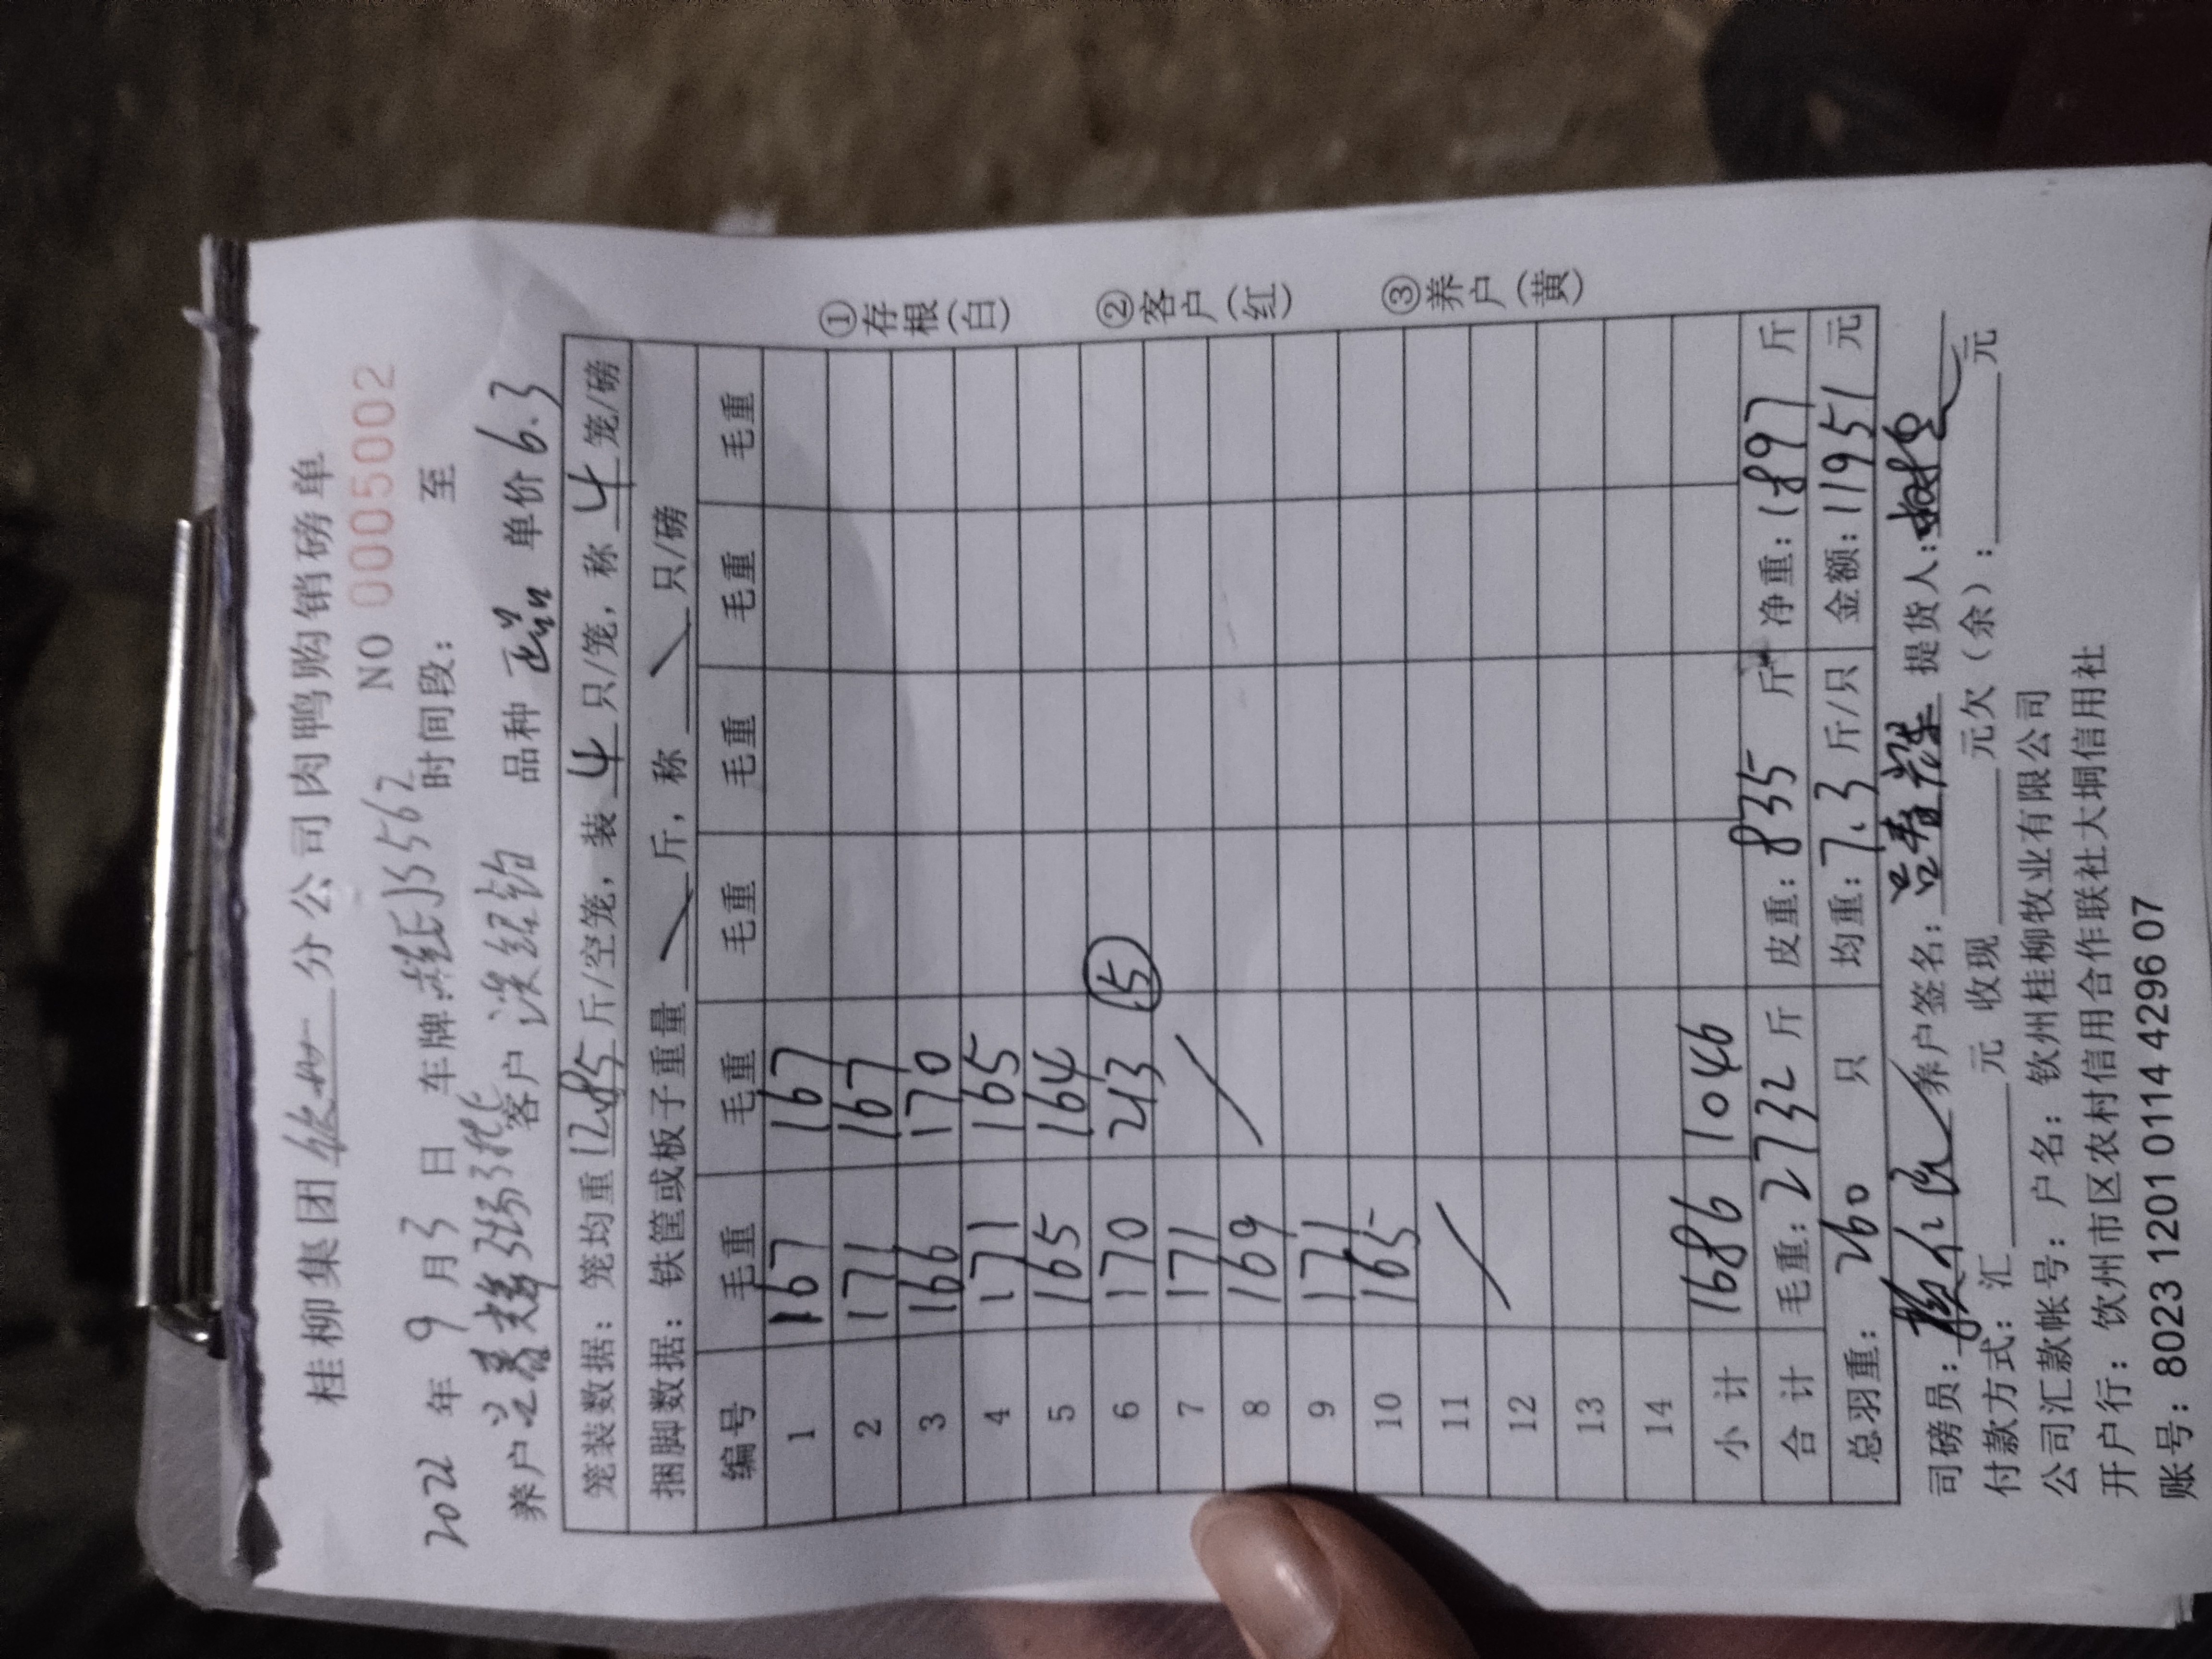 桂柳集团 分公司肉鸭购销磅单
NO 0005002
2022 年 9 月 3 日 车牌: J5562 时间段: 至
养户 客户 品种 单价 6.3
笼装数据: 笼均重 12.85 斤/空笼, 装 4 只/笼, 称 4 笼/磅
捆脚数据: 铁筐或板子重量 斤, 称 只/磅
编号 毛重 毛重 毛重 毛重 毛重 毛重
1 167 167
2 171 167
3 166 170
4 171 165
5 165 164
6 170 213 ⑤
7 171
8 169
9 171
10 165
11
12
13
14
小 计 1686 1046
合 计 毛重: 2732 斤 皮重: 835 斤 净重: 1897 斤
总羽重: 260 只 均重: 7.3 斤/只 金额: 11951 元
司磅员: 养户签名: 提货人:
付款方式: 汇 元 收现 元欠(余): 元
公司汇款帐号: 户名: 钦州桂柳牧业有限公司
开户行: 饮州市区农村信用合作联社大垌信用社
账号: 8023 1201 0114 4296 07
①存根(白)
②客户(红)
③养户(黄)